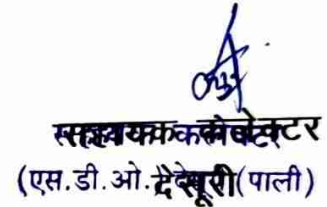 सहायक कलेक्टर
(एस.डी.ओ. देसूरी (पाली)